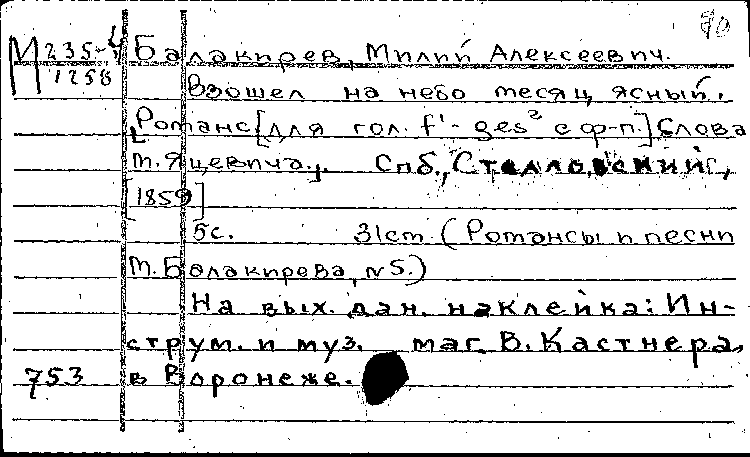 70
М 235-4 Балакирев, Милий Алексеевич.
1258 Взошел на небо месяц ясный.
Романс [для гол. f'- ges² с ф-п.] Слова
М. Яцевича. Спб., Стелловский,
[1859]
5с. 31см (Романсы и песни
М. Балакирева, №5.)
На вых. дан. наклейка: Ин-
струм. и муз. маг. В. Кастнера,
753 в Воронеже.